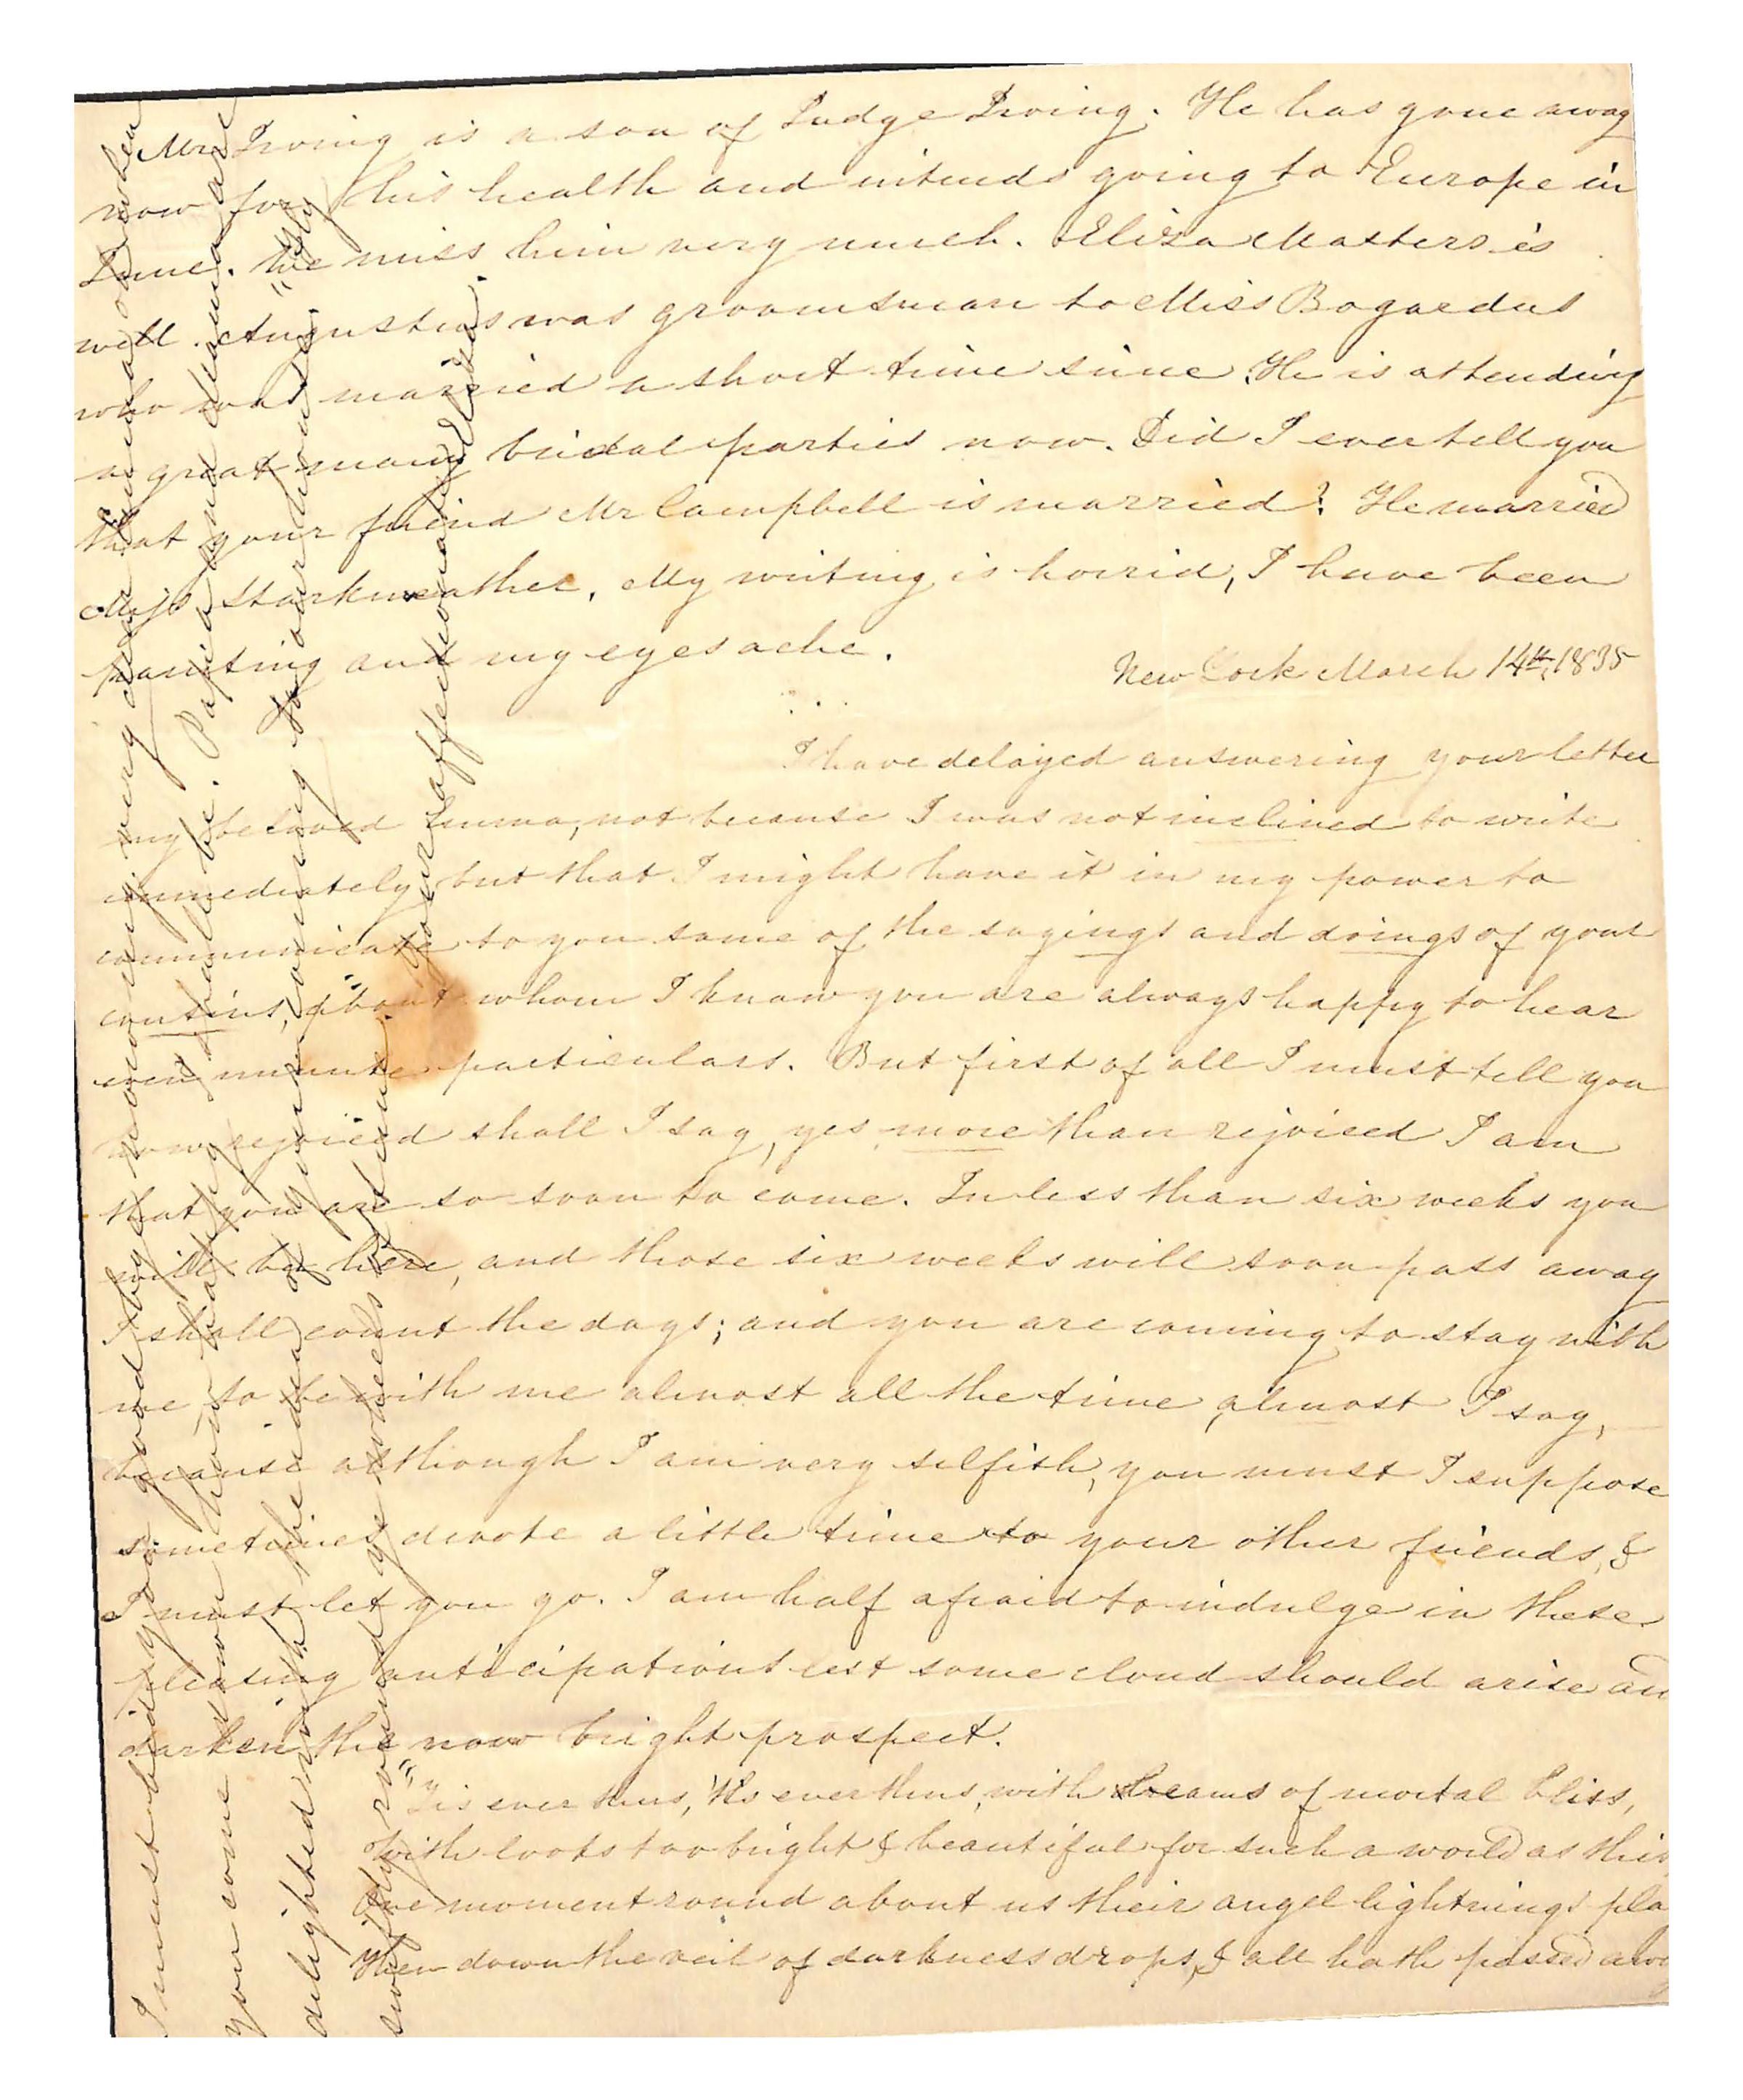 Mr Irving is a son of Judge Irving. He has gone away
now for his health and intends going to Europe in
June. We miss him very much. Eliza Masters is
well. Augustus was groomsman to Miss Bogardus
who was married a short time since. He is attending
a great many bridal parties now. Did I ever tell you
that your friend Mr Campbell is married? He married
Miss Starkweather. My writing is horrid, I have been
painting and my eyes ache.
New York March 14th, 1835
I have delayed answering your letter
my beloved Emma, not because I was not inclined to write
immediately but that I might have it in my power to
communicate to you some of the sayings and doings of your
cousins, about whom I know you are always happy to hear
even minute particulars. But first of all I must tell you
how rejoiced shall I say, yes more than rejoiced I am
that you are so soon to come. In less than six weeks you
will be here, and those six weeks will soon pass away
I shall count the days; and you are coming to stay with
me to be with me almost all the time, almost I say,
because although I am very selfish, you must I suppose
sometimes devote a little time to your other friends, &
I must let you go. I am half afraid to indulge in these
pleasing anticipations lest some cloud should arise an
darken the now bright prospect.
"Tis ever thus, 'tis ever thus, with dreams of mortal bliss,
With looks too bright & beautiful for such a world as this
One moment round about us their angel lightnings pla
Then down the veil of darkness drops, & all hath passed awa
I must bid you good bye now my very dear Emma
your come down how happy I shall be. Papa and Mamma are
delighted with the idea of your coming to our house. "Fly
swiftly round ye wheels of time." Your affectionate Eliza.